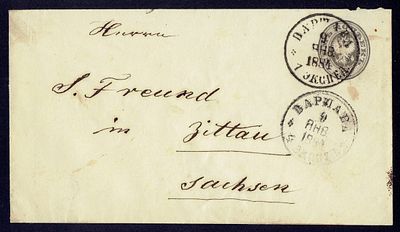 Herrn
S. Freund
in Zittau
Sachsen
ВАРШАВА
9
ЯНВ.
1884
ЭКСПЕД.
ВАРШАВА
9
ЯНВ.